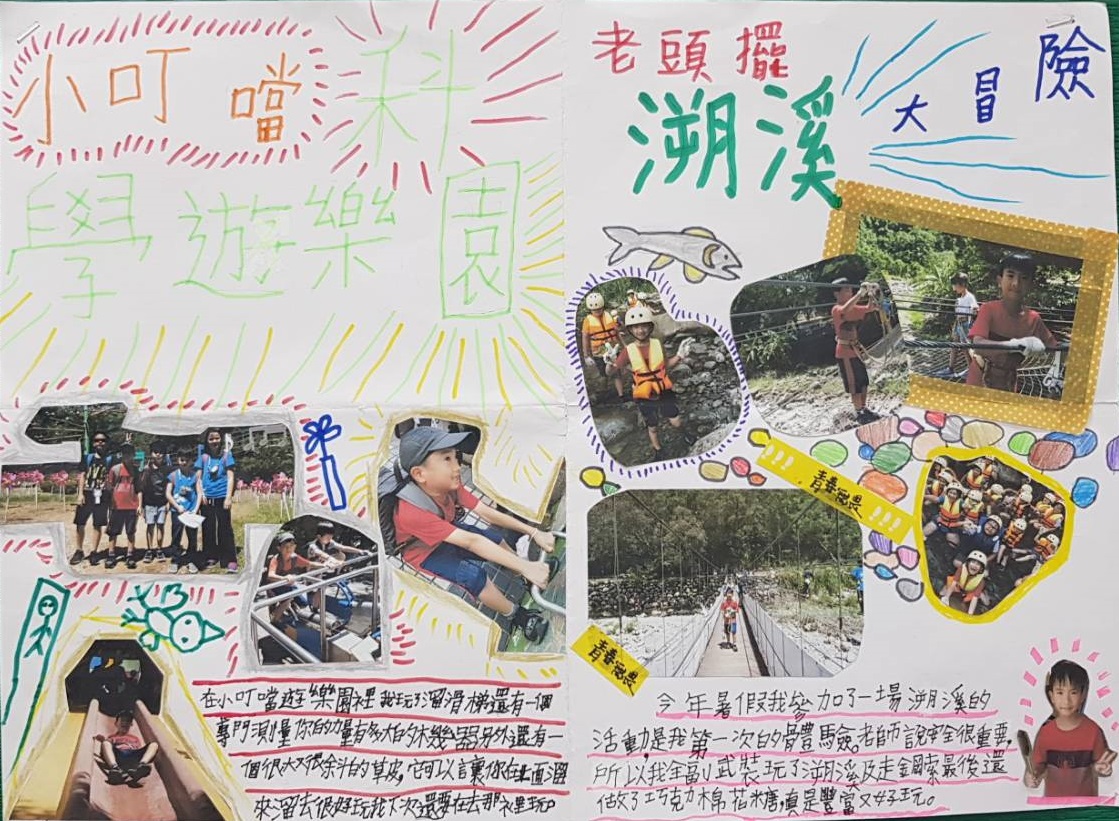 小叮噹科
學遊樂園
在小叮噹遊樂園裡我玩了溜滑梯還有一個
專門測量你的力量有多大的木幾器另外還有一
個很大又很余斗的草皮,它可以言讓你在上面溜
來溜去很好玩我下次還要在去那裡玩。
老頭擺
溯溪
大冒險
青春無畏
青春無畏
今年暑假我參加了一場溯溪的
活動,是我第一次的體驗。老師說安全很重要,
所以我全副武裝玩了溯溪及走鋼索最後還
做了巧克力棉花糖,真是豐富又好玩。